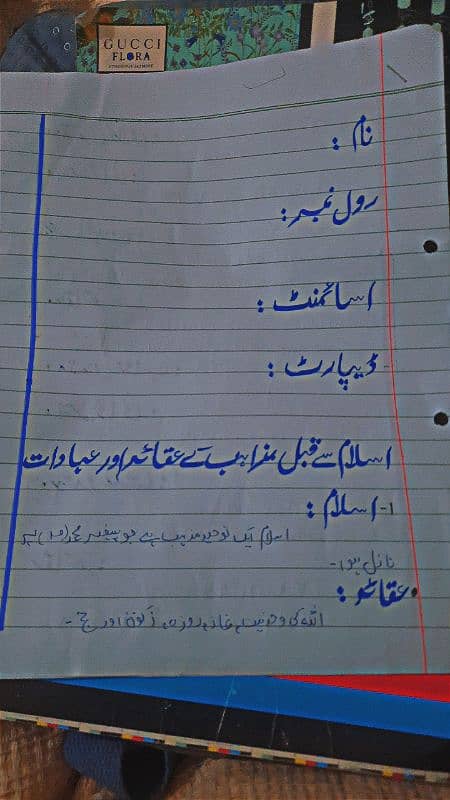 GUCCI
FLORA
نام :
رول نمبر :
اسائمنٹ :
ڈیپارٹ :
اسلام سے قبل مذاہب کے عقائد اور عبادات
۱- اسلام :
اسلام ایک توحید مذہب ہے جو پیغمبر محمد (ص) پر
نازل ہوا-
عقائد :
اللہ کی وحدنیت، نماز، روزہ، زکوٰۃ اور حج -